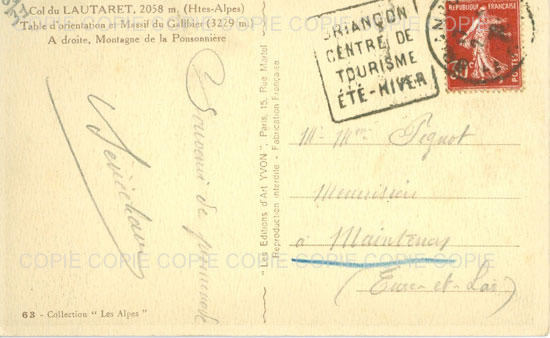 Col du LAUTARET, 2058 m. (Htes-Alpes)
Table d'orientation et Massif du Galibier (3229 m.)
A droite, Montagne de la Ponsonnière
Souvenir de promenade
63 - Collection "Les Alpes"
"Les Editions d'Art YVON", Paris, 15, Rue Martel
Reproduction interdite - Fabrication Française
BRIANÇON
CENTRE DE
TOURISME
ÉTÉ-HIVER
REPUBLIQUE FRANÇAISE
POSTES
Mr Mme Pignot
Menuisier
à Maintenon
(Eure-et-Loir)
COPIE COPIE COPIE COPIE COPIE COPIE COPIE COPIE
COPIE COPIE COPIE COPIE COPIE COPIE COPIE COPIE